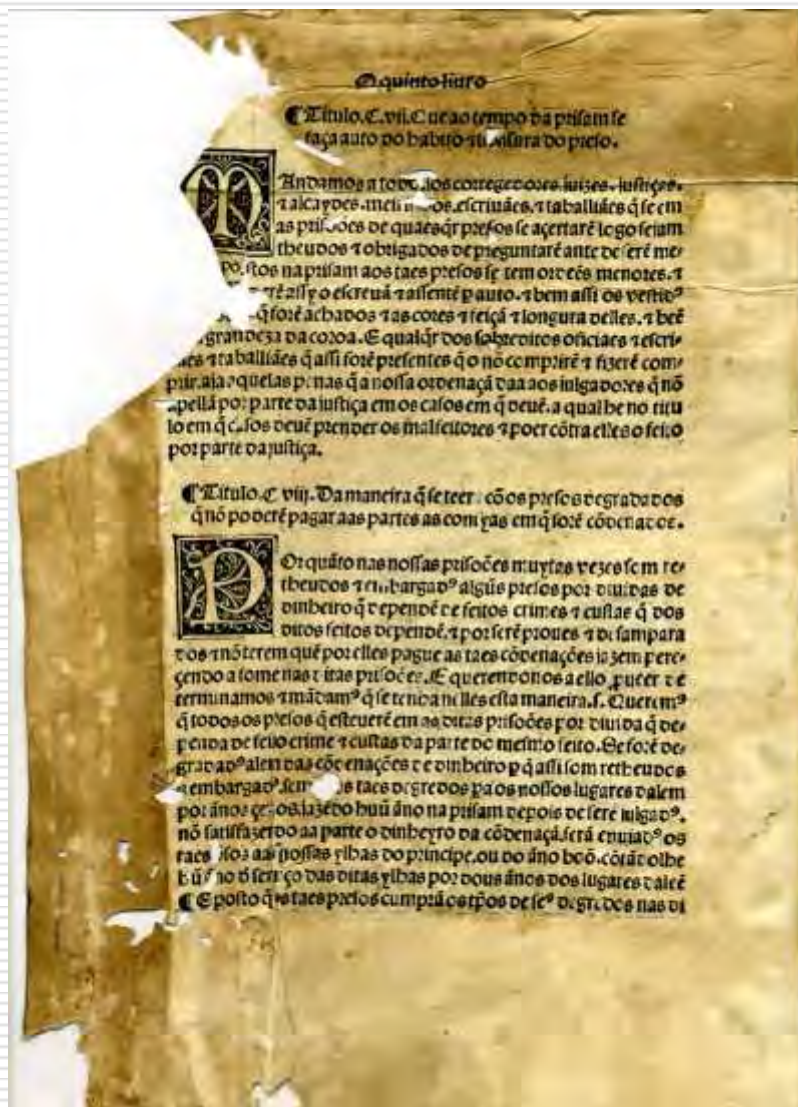 O quinto liuro
¶ Titulo. C. vii. Que ao tempo da prisam se
faça auto do habito ⁊ tonsura do preso.
MAndamos a todos los corregedores. iuizes. iustiças.
⁊ alcaydes. meirinhos. escriuães. ⁊ taballiães q̃ se em
as prisoões de quaesqr̃ presos se açertarẽ logo seiam
theudos ⁊ obrigados de preguntarẽ ante de serẽ me-
postos na prisam aos taes presos se tem ordeẽs menores. ⁊
assy o escreuã ⁊ assentẽ p auto. ⁊ bem assi os vestidꝰ
q̃ forẽ achados ⁊ as cores ⁊ feiçã ⁊ longura delles. ⁊ beẽ
grandeza da coroa. E qualqr̃ dos sobreditos oficiaes ⁊ escri-
⁊ taballiães q̃ assi forẽ presentes q̃ o nõ comprirẽ ⁊ fizerẽ com-
prir. aia aquelas penas q̃ a nossa ordenaçã daa aos iulgadores q̃ nõ
apellã por parte da iustiça em os casos em q̃ deuẽ. a qual he no titu
lo em q̃ casos deuẽ prender os malfeitores ⁊ poer cõtra elles o feito
por parte da justiça.
¶ Titulo. C viij. Da maneira q̃ se teer cõ os presos degradados
q̃ nõ poderẽ pagar aas partes as contyas em q̃ forẽ cõdenados.
POr quãto nas nossas prisoões muytas vezes som re-
theudos ⁊ embargadꝰ algũs presos por diuidas de
dinheiro q̃ dependẽ de feitos crimes ⁊ custas q̃ dos
ditos feitos dependẽ. ⁊ por serẽ proues ⁊ desampara
dos ⁊ nõ terem quẽ por elles pague as taes cõdenações iazem pere-
çendo a fome nas ditas prisoões. E querendo nos a ello prueer de
terminamos ⁊ mãdamꝰ q̃ se tenha nelles esta maneira. s. Queremꝰ
q̃ todos os presos q̃ esteuerẽ em as ditas prisoões por diuida q̃ de-
penda de feito crime ⁊ custas da parte do mesmo feito. Se forẽ de-
gradadꝰ alen das cõdenações de dinheiro p q̃ assi som retheudos
⁊ embargadꝰ. taes degredos pa os nossos lugares dalem
por ãnos çertos. iazẽdo huũ ãno na prisam depois de sere iulgadꝰ.
nõ satisfazendo aa parte o dinheyro da cõdenaçã. serã enuiadꝰ os
taes presos aas nossas ylhas do principe. ou do ãno boõ. cõtãdolhe
hũ ãno d seruiço das ditas ylhas por dous ãnos dos lugares dalẽ
¶ E posto q̃ os taes presos cumprã os tp̃os de seꝰ degredos nas di